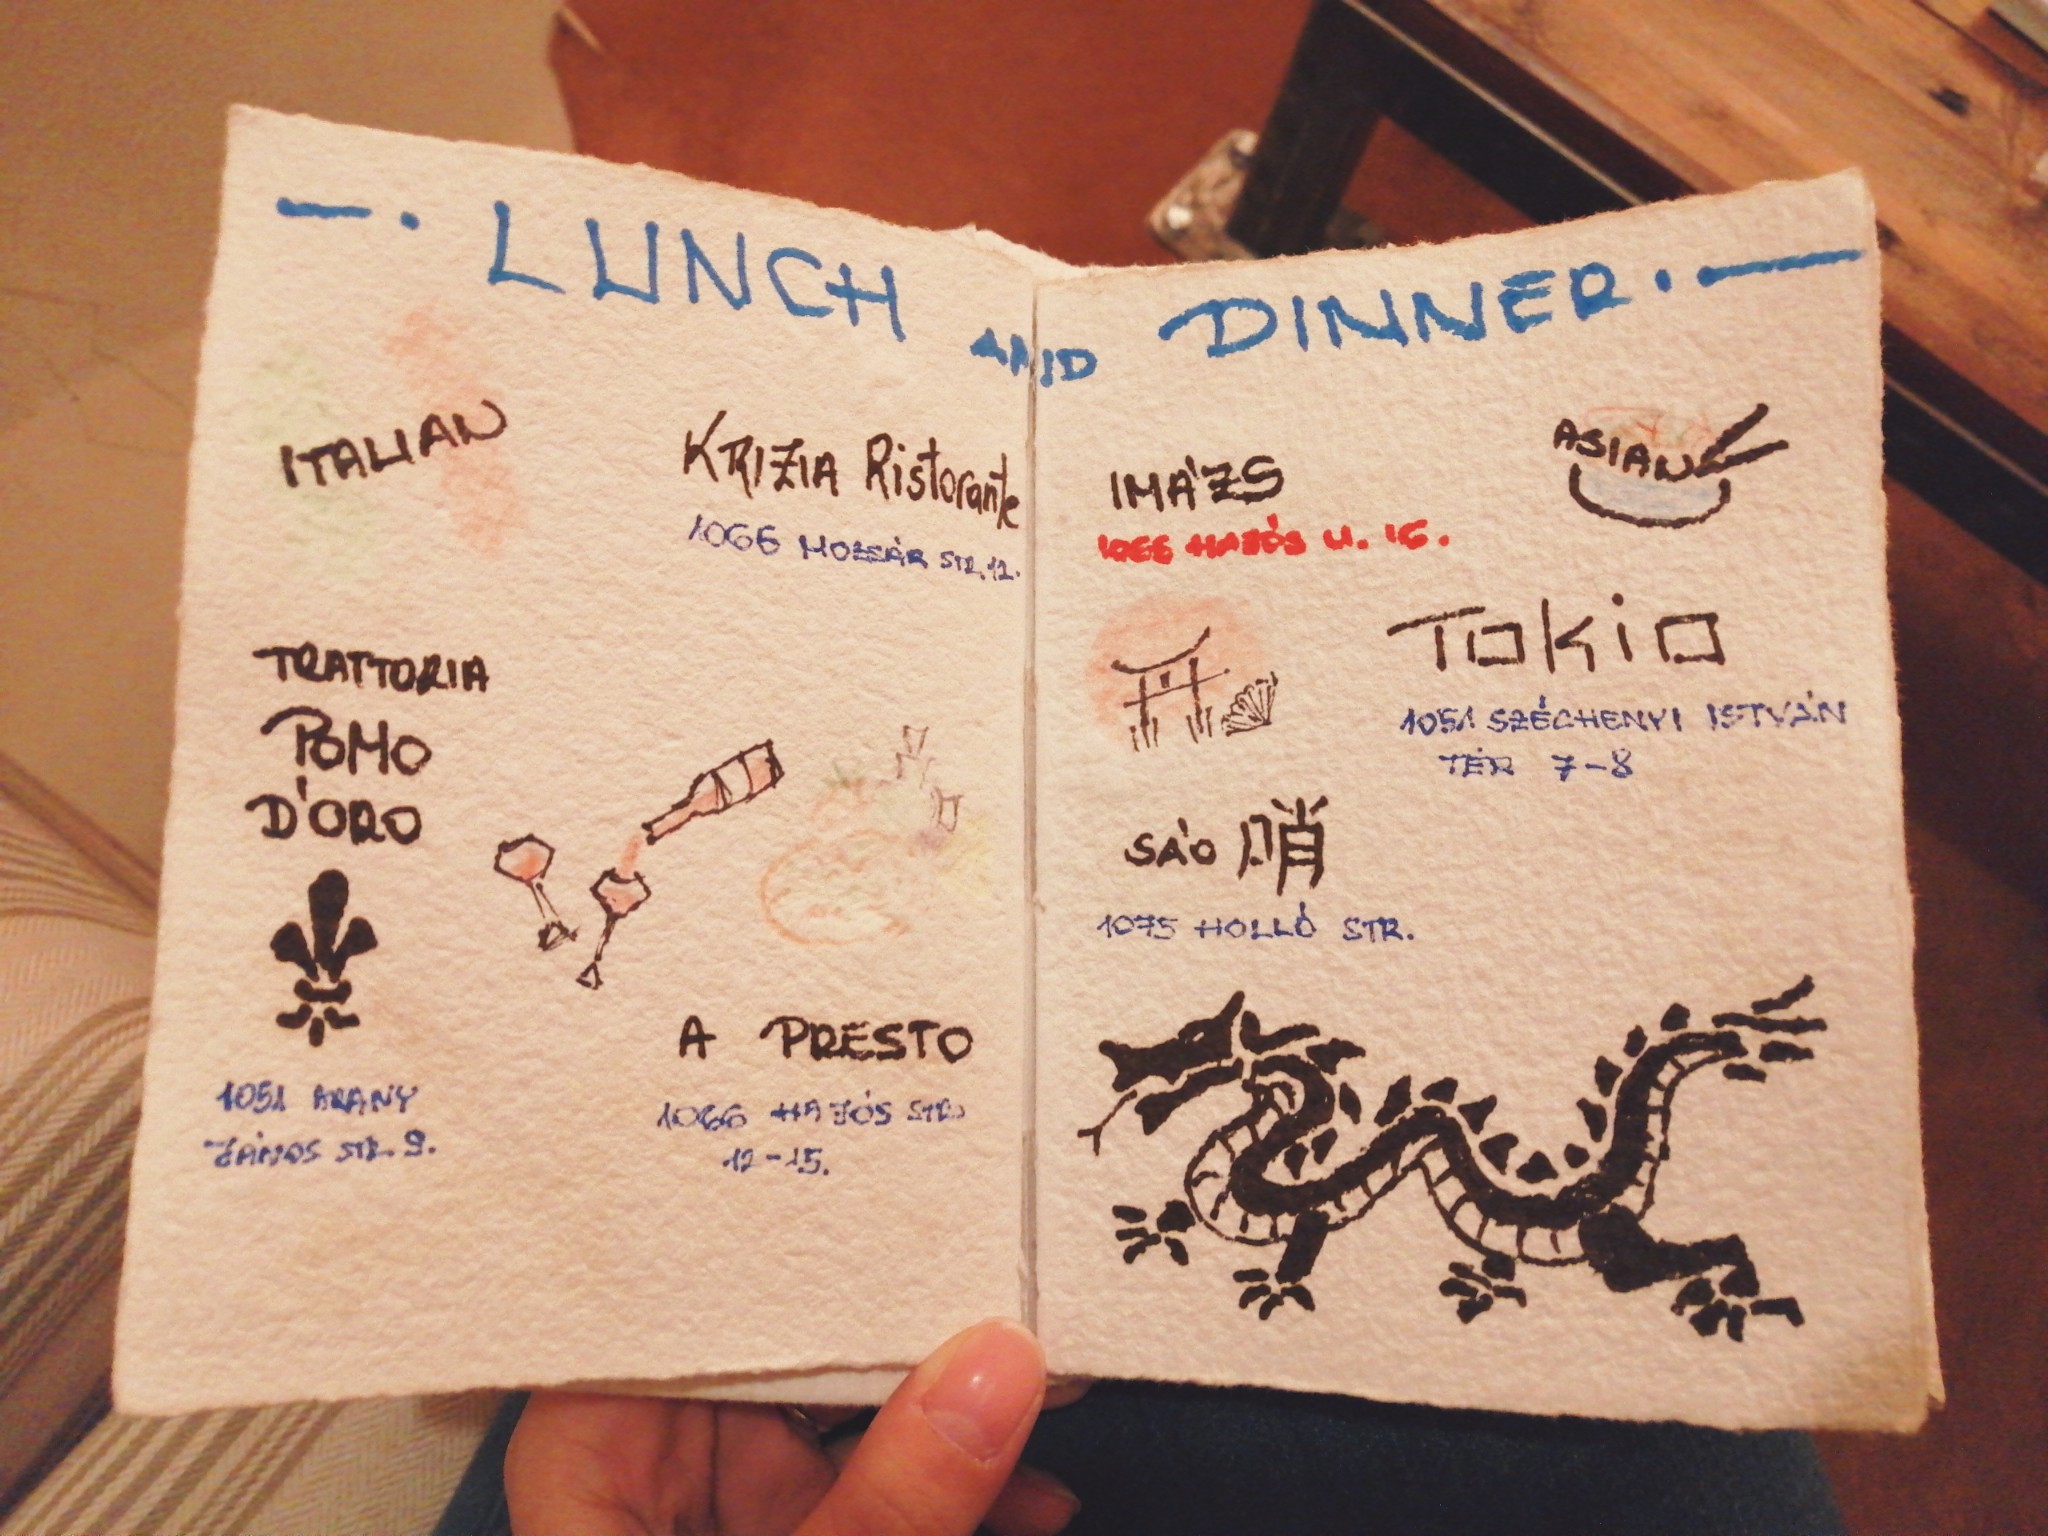 LUNCH AND DINNER
ITALIAN
KRIZIA Ristorante
1066 MOZSÁR STR. 12.
TRATTORIA
POMO
D'ORO
1051 ARANY
JÁNOS STR. 9.
A PRESTO
1066 HAJÓS STR.
12-15.
ASIAN
IMÁZS
1066 HAJÓS U. 16.
TOKIO
1051 SZÉCHENYI ISTVÁN
TÉR 7-8
SÁO 哨
1075 HOLLÓ STR.